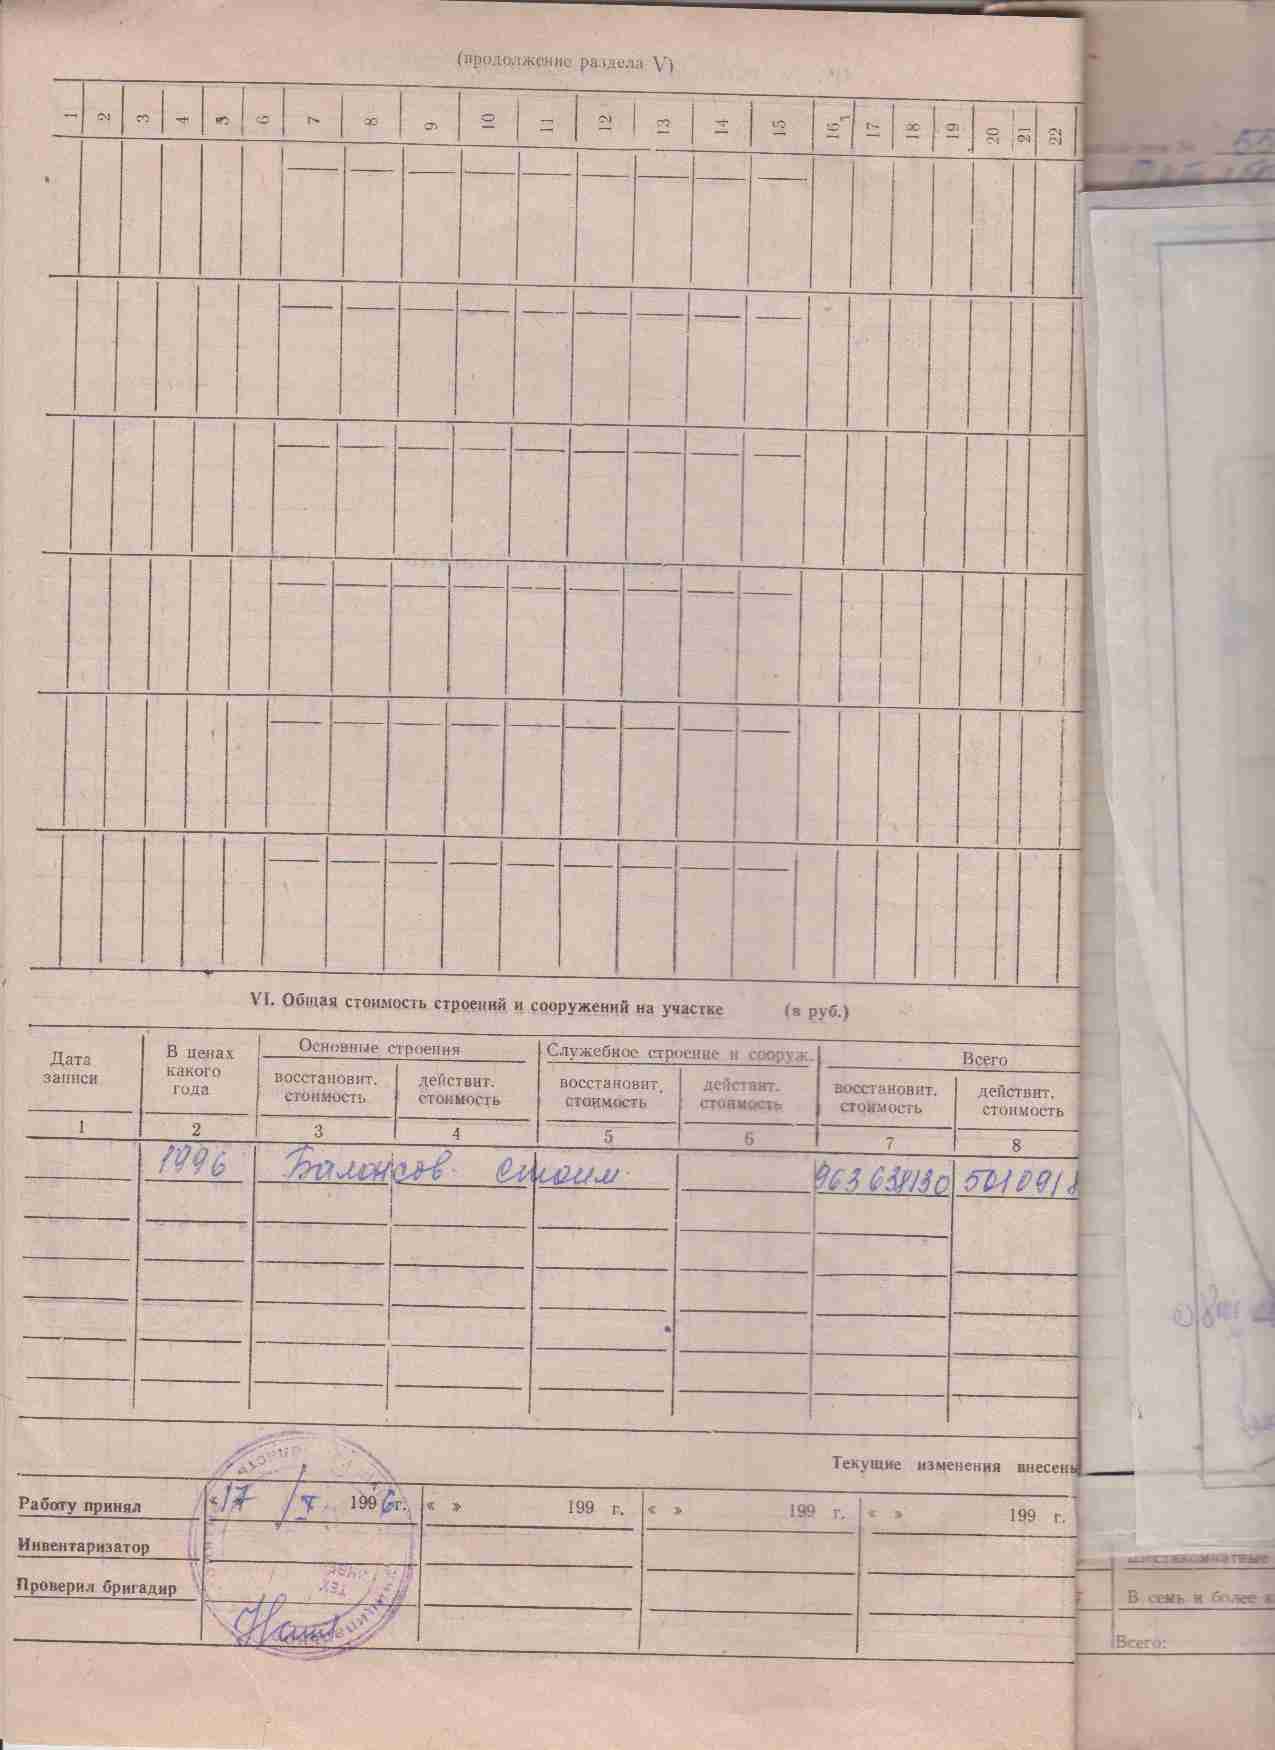 (продолжение раздела V)
1 2 3 4 5 6 7 8 9 10 11 12 13 14 15 16 17 18 19 20 21 22
55
VI. Общая стоимость строений и сооружений на участке (в руб.)
Дата записи
В ценах какого года
Основные строения
Служебное строение и сооруж.
Всего
восстановит. стоимость
действит. стоимость
восстановит. стоимость
действит. стоимость
восстановит. стоимость
действит. стоимость
1 2 3 4 5 6 7 8
1996 Балансов. стоим. 963638130 5010918
Текущие изменения внесены
Работу принял «17 / X 1996 г. « » 199 г. « » 199 г. « » 199 г.
Инвентаризатор
Проверил бригадир
В семь и более к
Всего: